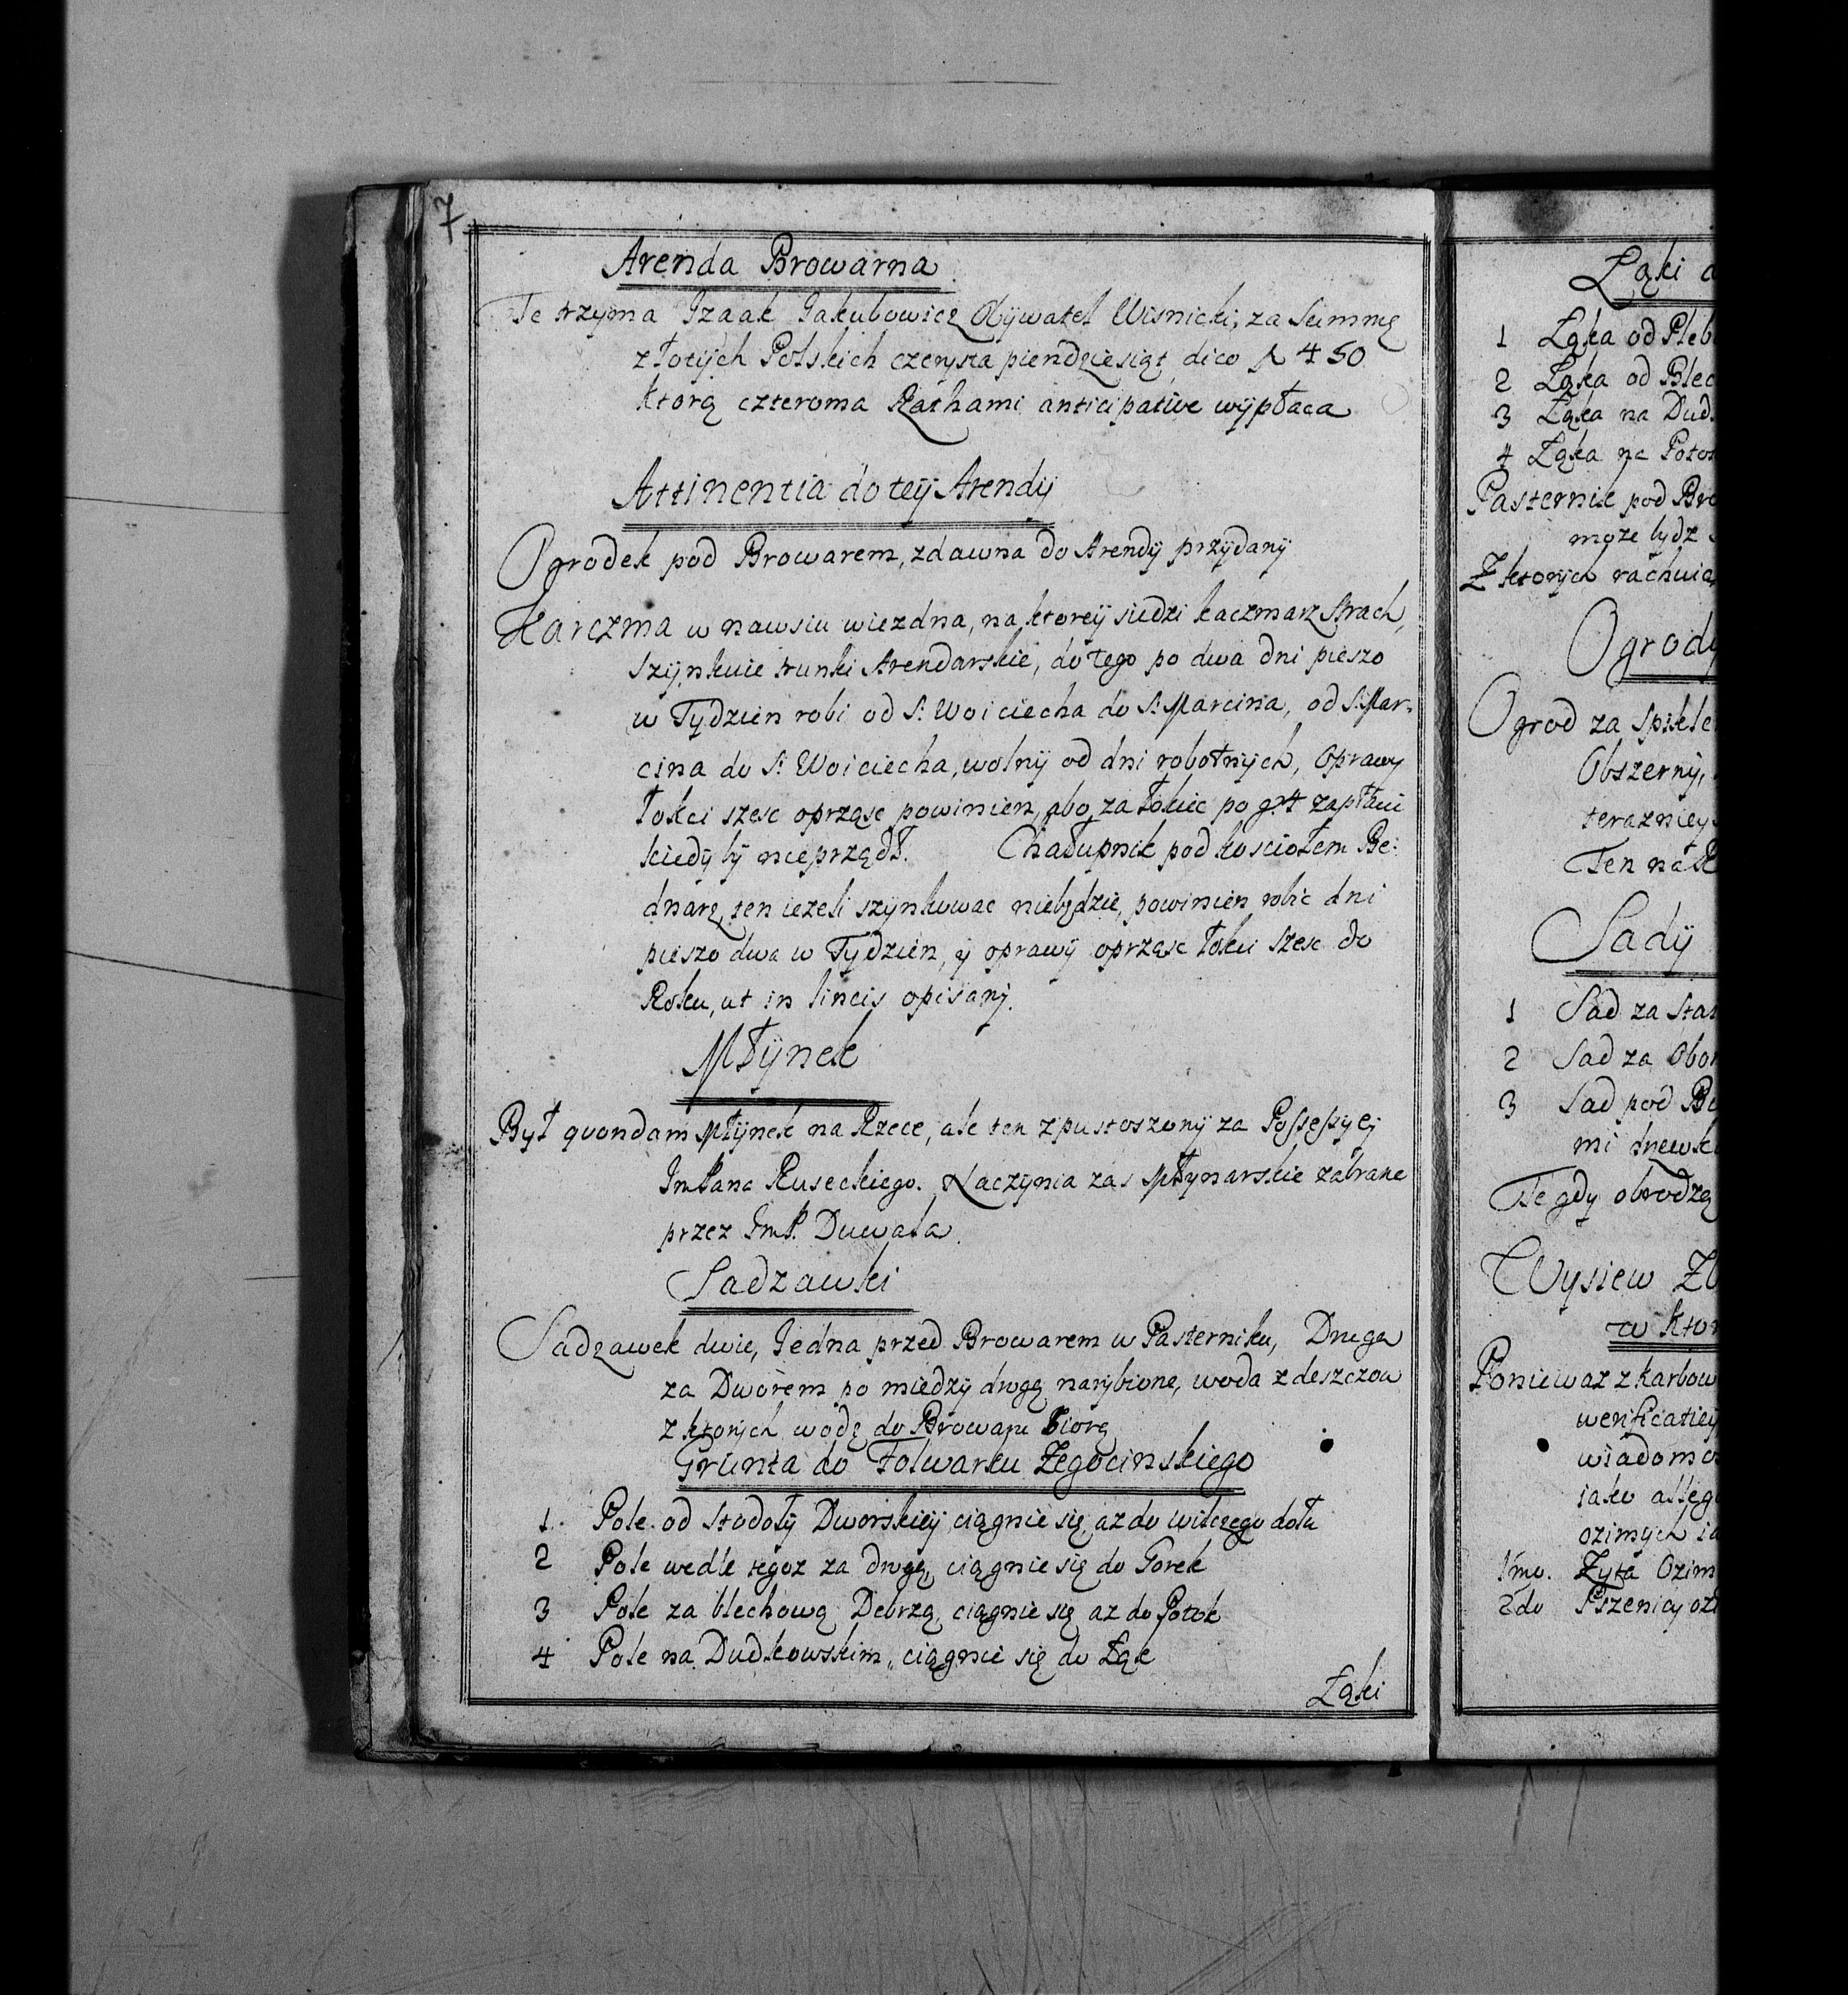 7
Arenda Browarna
Te trzyma Jzaak Jakubowicz Obÿwatel Wisnicki, za Summę
złotÿch Polskich czterÿsta piendziesiąt dico 450
ktorą czteroma Rathami anticipative wÿpłaca
Attinentia do teÿ Arendÿ
Ogrodek pod Browarem, zdawna do Arendÿ przÿdanÿ
Karczma w nawsiu wiezdna, na ktoreÿ siedzi kaczmarz Strach,
Szÿnkuie trunki Arendarskie, do tego po dwa dni pieszo
w Tydzien robi od S: Woiciecha do S: Marcina, od S: Mar-
cina do S: Woiciecha, wolnÿ od dni robotnÿch, Oprawy
łokci szesc oprząsc powinien, abo za łokiec po g: 4 zapłaci
kiedÿ bÿ nieprządł. Chałupnik pod kosciołem Be:
dnarz, ten iezeli szÿnkowac niebędzie, powinien robic dni
pieszo dwa w Tydzien, ÿ oprawÿ oprząsc łokci szesc do
Roku, ut in lineis opisanÿ.
Młÿnek
Był quondam Młÿnek na Rzece, ale ten zpustoszonÿ za Possessyej
JmPana Ruseckiego. Naczÿnia zas Młynarskie zabrane
przez JmP. Duwala.
Sadzawki
Sadzawek dwie, Jedna przed Browarem w Pasterniku, Druga
za Dworem po miedzÿ drogą narybione, woda z deszczow
z ktorÿch wodę do Browaru biorą
Grunta do Folwarku Zegocinskiego
1. Pole od stodołÿ Dworskieÿ, ciągnie się az do wilczego dołu
2 Pole wedle tegoz za drogą, ciągnie się do Gorek
3 Pole za blechową Debrzą, ciągnie się az do Potok
4 Pole na Dudkowskim, ciągnie się do Łąk
Łąki
Łąki
1 Łąka od
2 Łąka od
3 Łąka na
4 Łąka na
Pasternik pod
moze bydz
Z ktorÿch
Ogrody
Ogrod za
Obszernÿ,
Ten na
Sadÿ
1 Sad za
2 Sad za
3 Sad pod
mi
Te gdy obrodzą
Wysiew
w
Poniewaz z
iako
ozimych
1mo. Zyta
2do Pszenicy